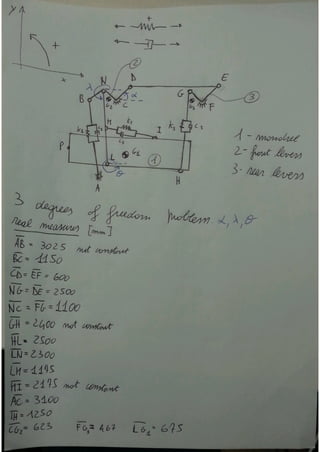 y
+
+
x
2
N
D
E
λ
α
B
G2
C
G
F
3
M
I
P
L
G1
1
H
A
θ
1 - mandrel
2 - front levers
3 - rear levers
3 degrees of freedom problem: α, λ, θ
real measures [mm]
AB = 3025 not constant
BC = 1150
CD = EF = 600
NG = DE = 2500
NC = FG = 1100
GH = 2400 not constant
HL = 2500
LN = 2300
LM = 1195
MI = 2175 not constant
AC = 3100
IH = 1250
CG2 = 623 FG3 = 467 LG1 = 675